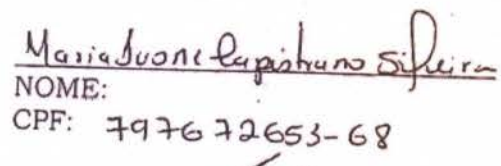 Maria Ivone Capistrano Silveira
NOME:
CPF: 797672653-68